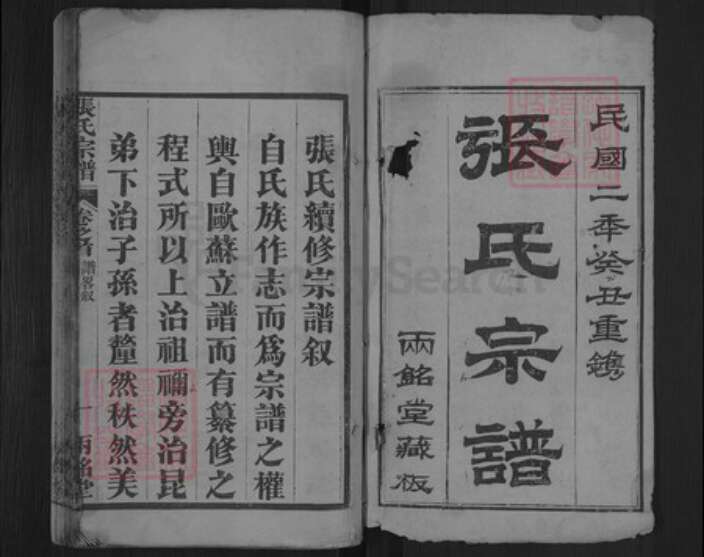 民國二年癸丑重鐫
張氏宗譜
兩銘堂藏板
張氏續修宗譜叙
自氏族作志而為宗譜之權
輿自歐蘇立譜而有纂修之
程式所以上治祖禰旁治昆
弟下治子孫者釐然秩然美
張氏宗譜 卷之首 譜畧叙 一 兩銘堂
FamilySearch